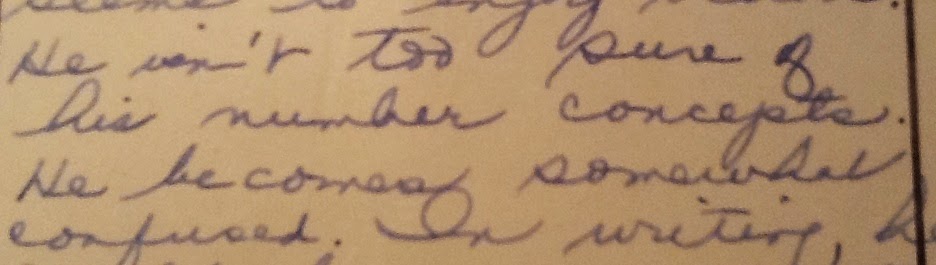 seems to enjoy
He isn't too sure of
his number concepts.
He becomes somewhat
confused. In writing, he